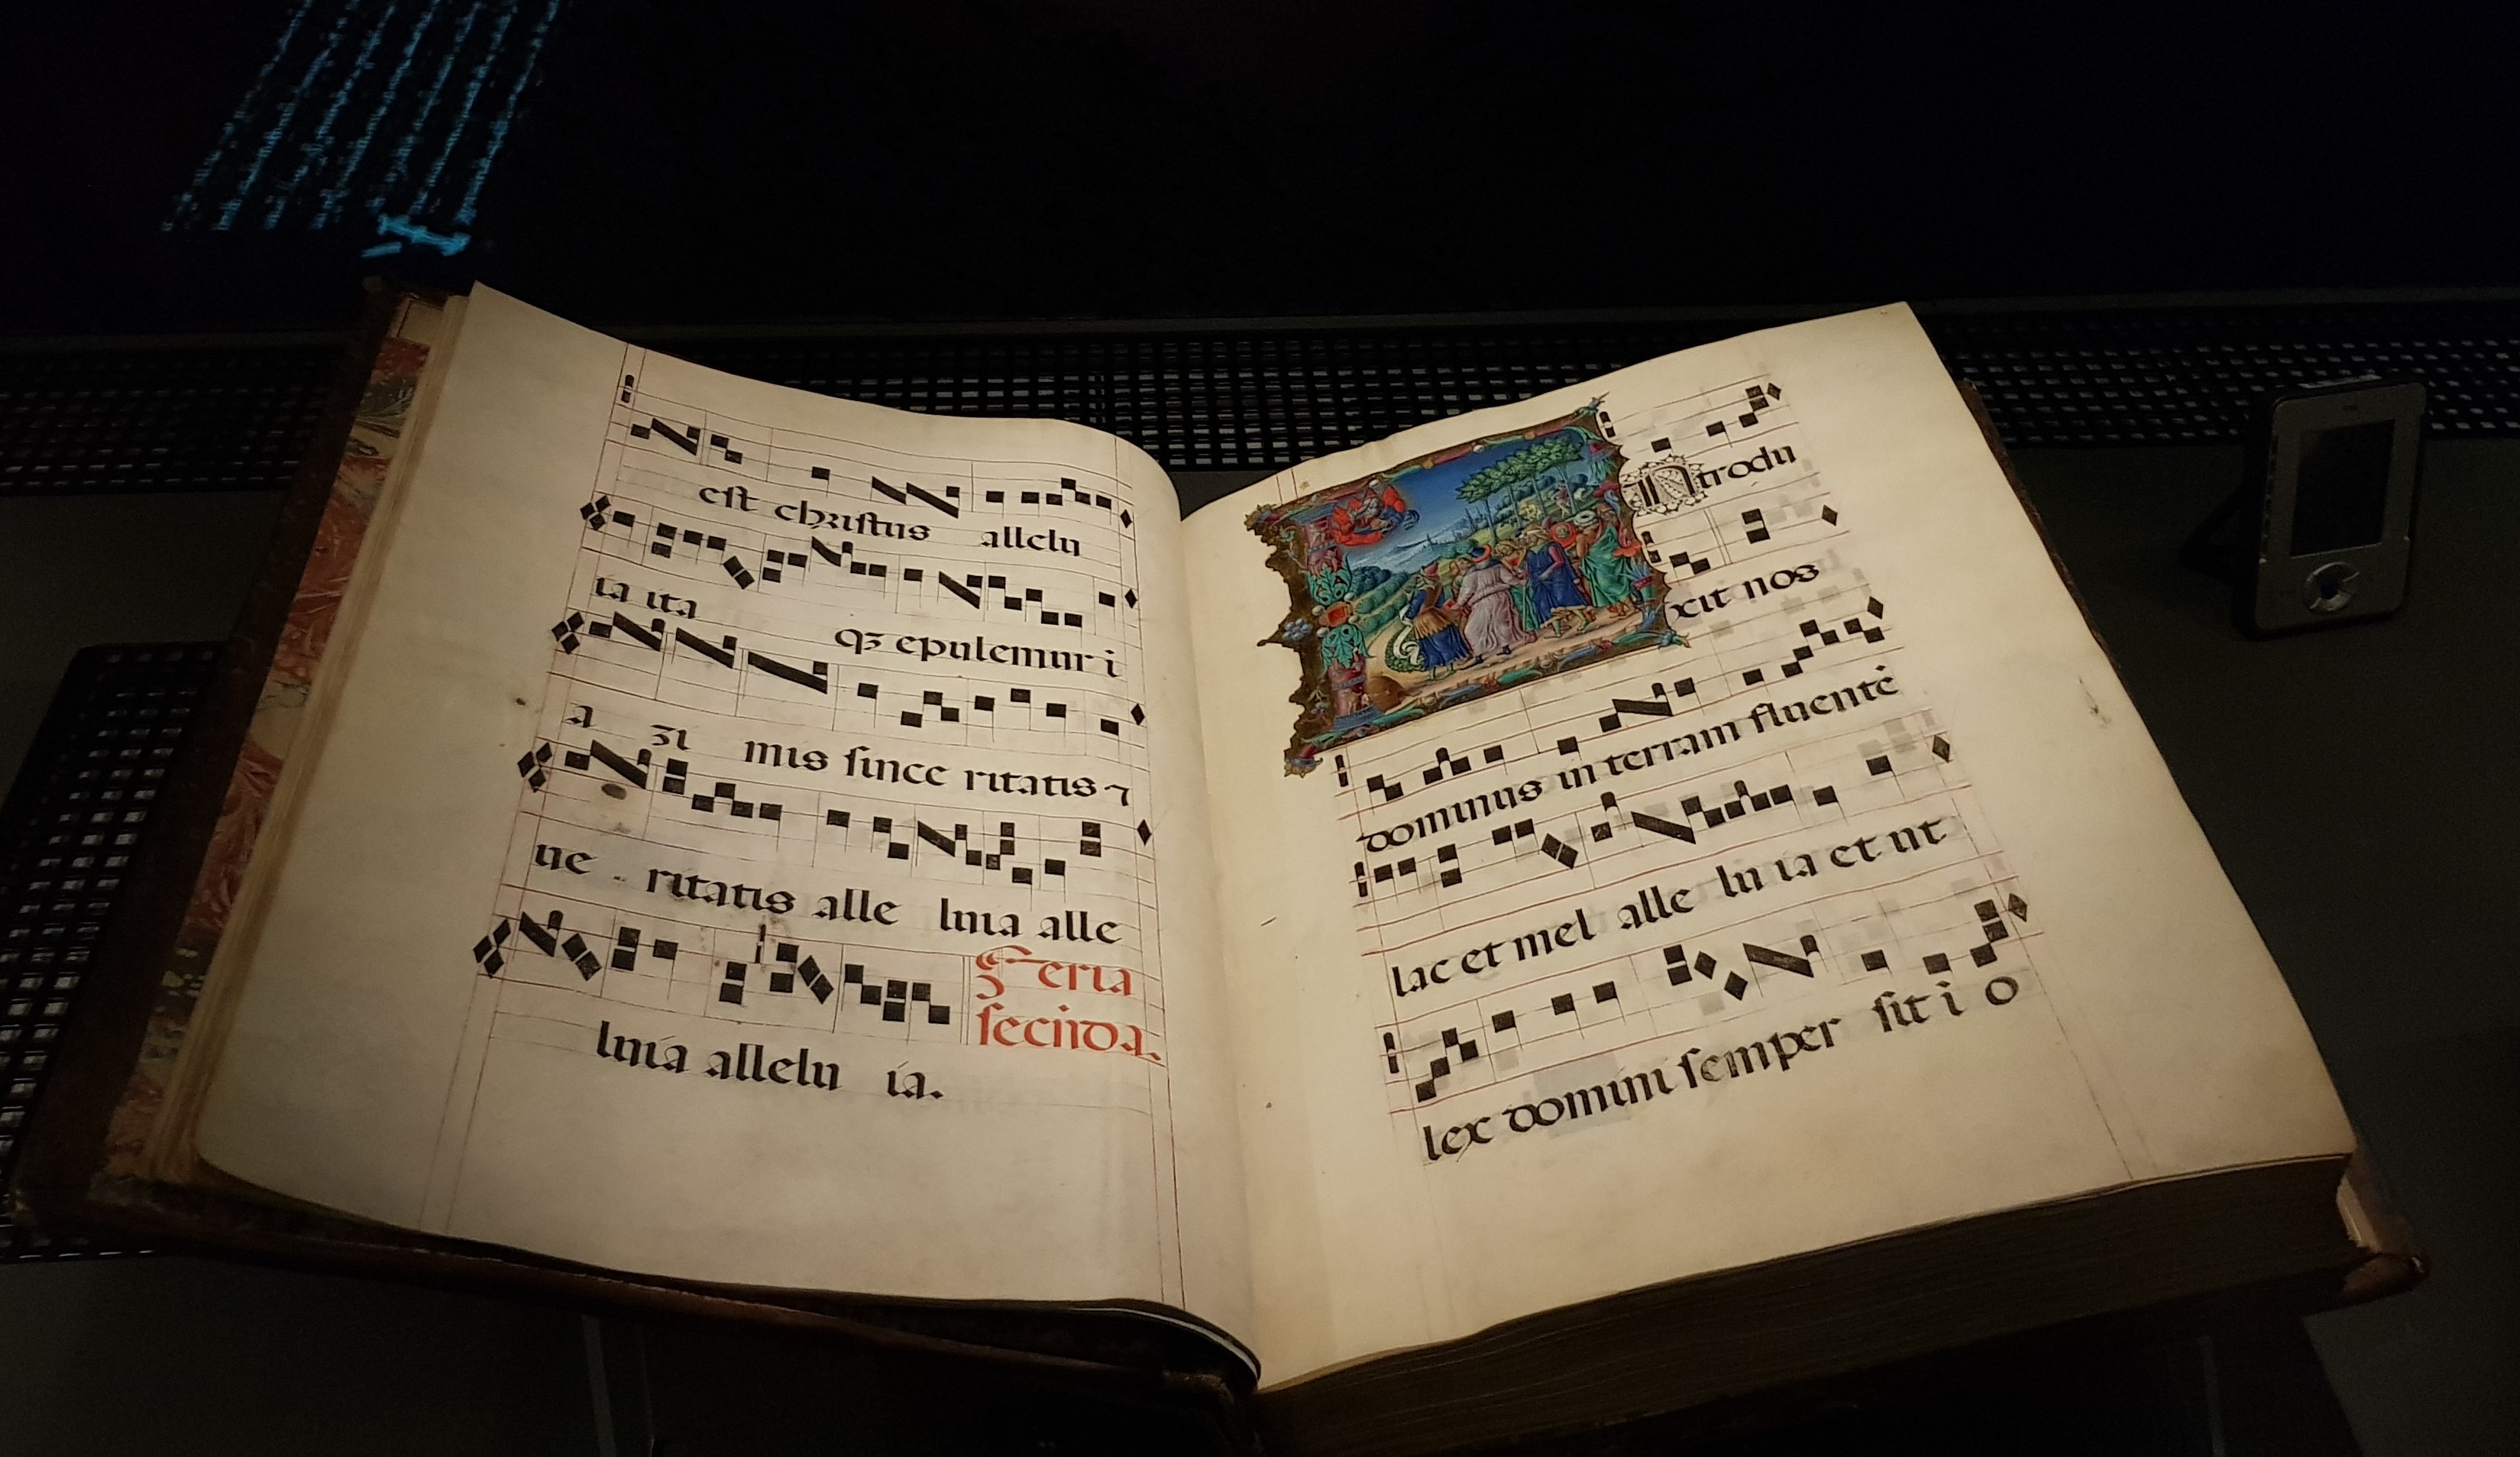 est christus allelu
ia ita qꝫ epulemur i
a zi mis since ritatis ⁊
ue ritatis alle luia alle
luia allelu ia.
Feria
secūda.
INtrodu
xit nos
dominus in terram fluentē
lac et mel alle lu ia et ut
lex domini semper sit i o